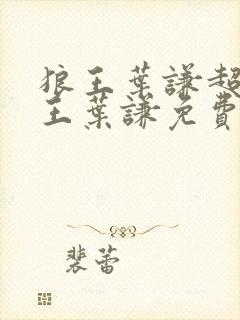 狼王葉謙超
王葉謙免費
裴蕾